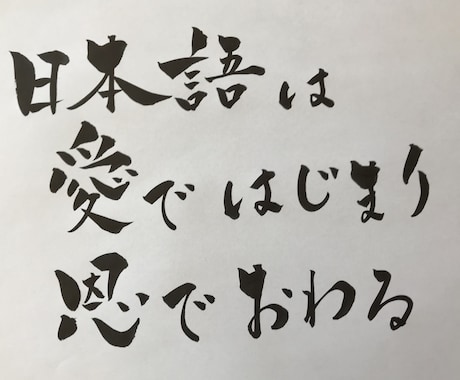 日本語は
愛ではじまり
恩でおわる